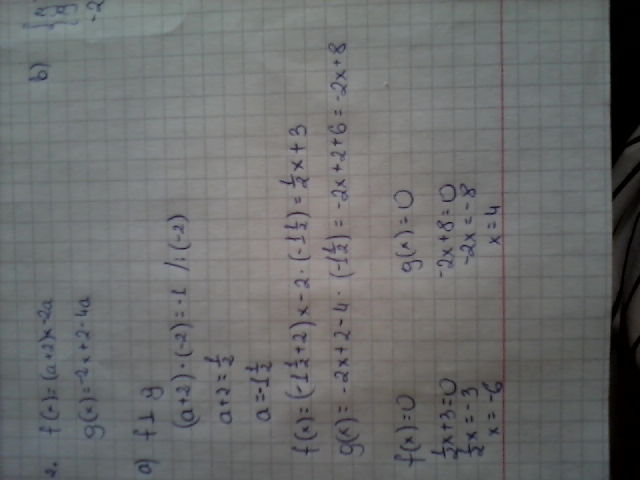 2. f(x)=(a+2)x-2a
g(x)=-2x+2-4a
a) f ⊥ g
(a+2)·(-2)=-1 /:(-2)
a+2=1/2
a=-1 1/2
f(x)=(-1 1/2+2)x-2·(-1 1/2)=1/2x+3
g(x)=-2x+2-4·(-1 1/2)=-2x+2+6=-2x+8
f(x)=0 g(x)=0
1/2x+3=0 -2x+8=0
1/2x=-3 -2x=-8
x=-6 x=4
b)
-2